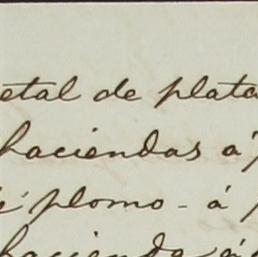 etal de plata
haciendas á
plomo - á
hacienda á